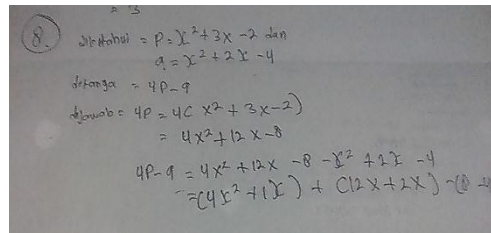 = 3
8.
diketahui = P = x² + 3x - 2 dan
q = x² + 2x - 4
ditanya = 4P - q
dijawab = 4P = 4( x² + 3x - 2)
= 4x² + 12x - 8
4P - q = 4x² + 12x - 8 - x² + 2x - 4
= (4x² + 1x ) + (12x + 2x) - (8